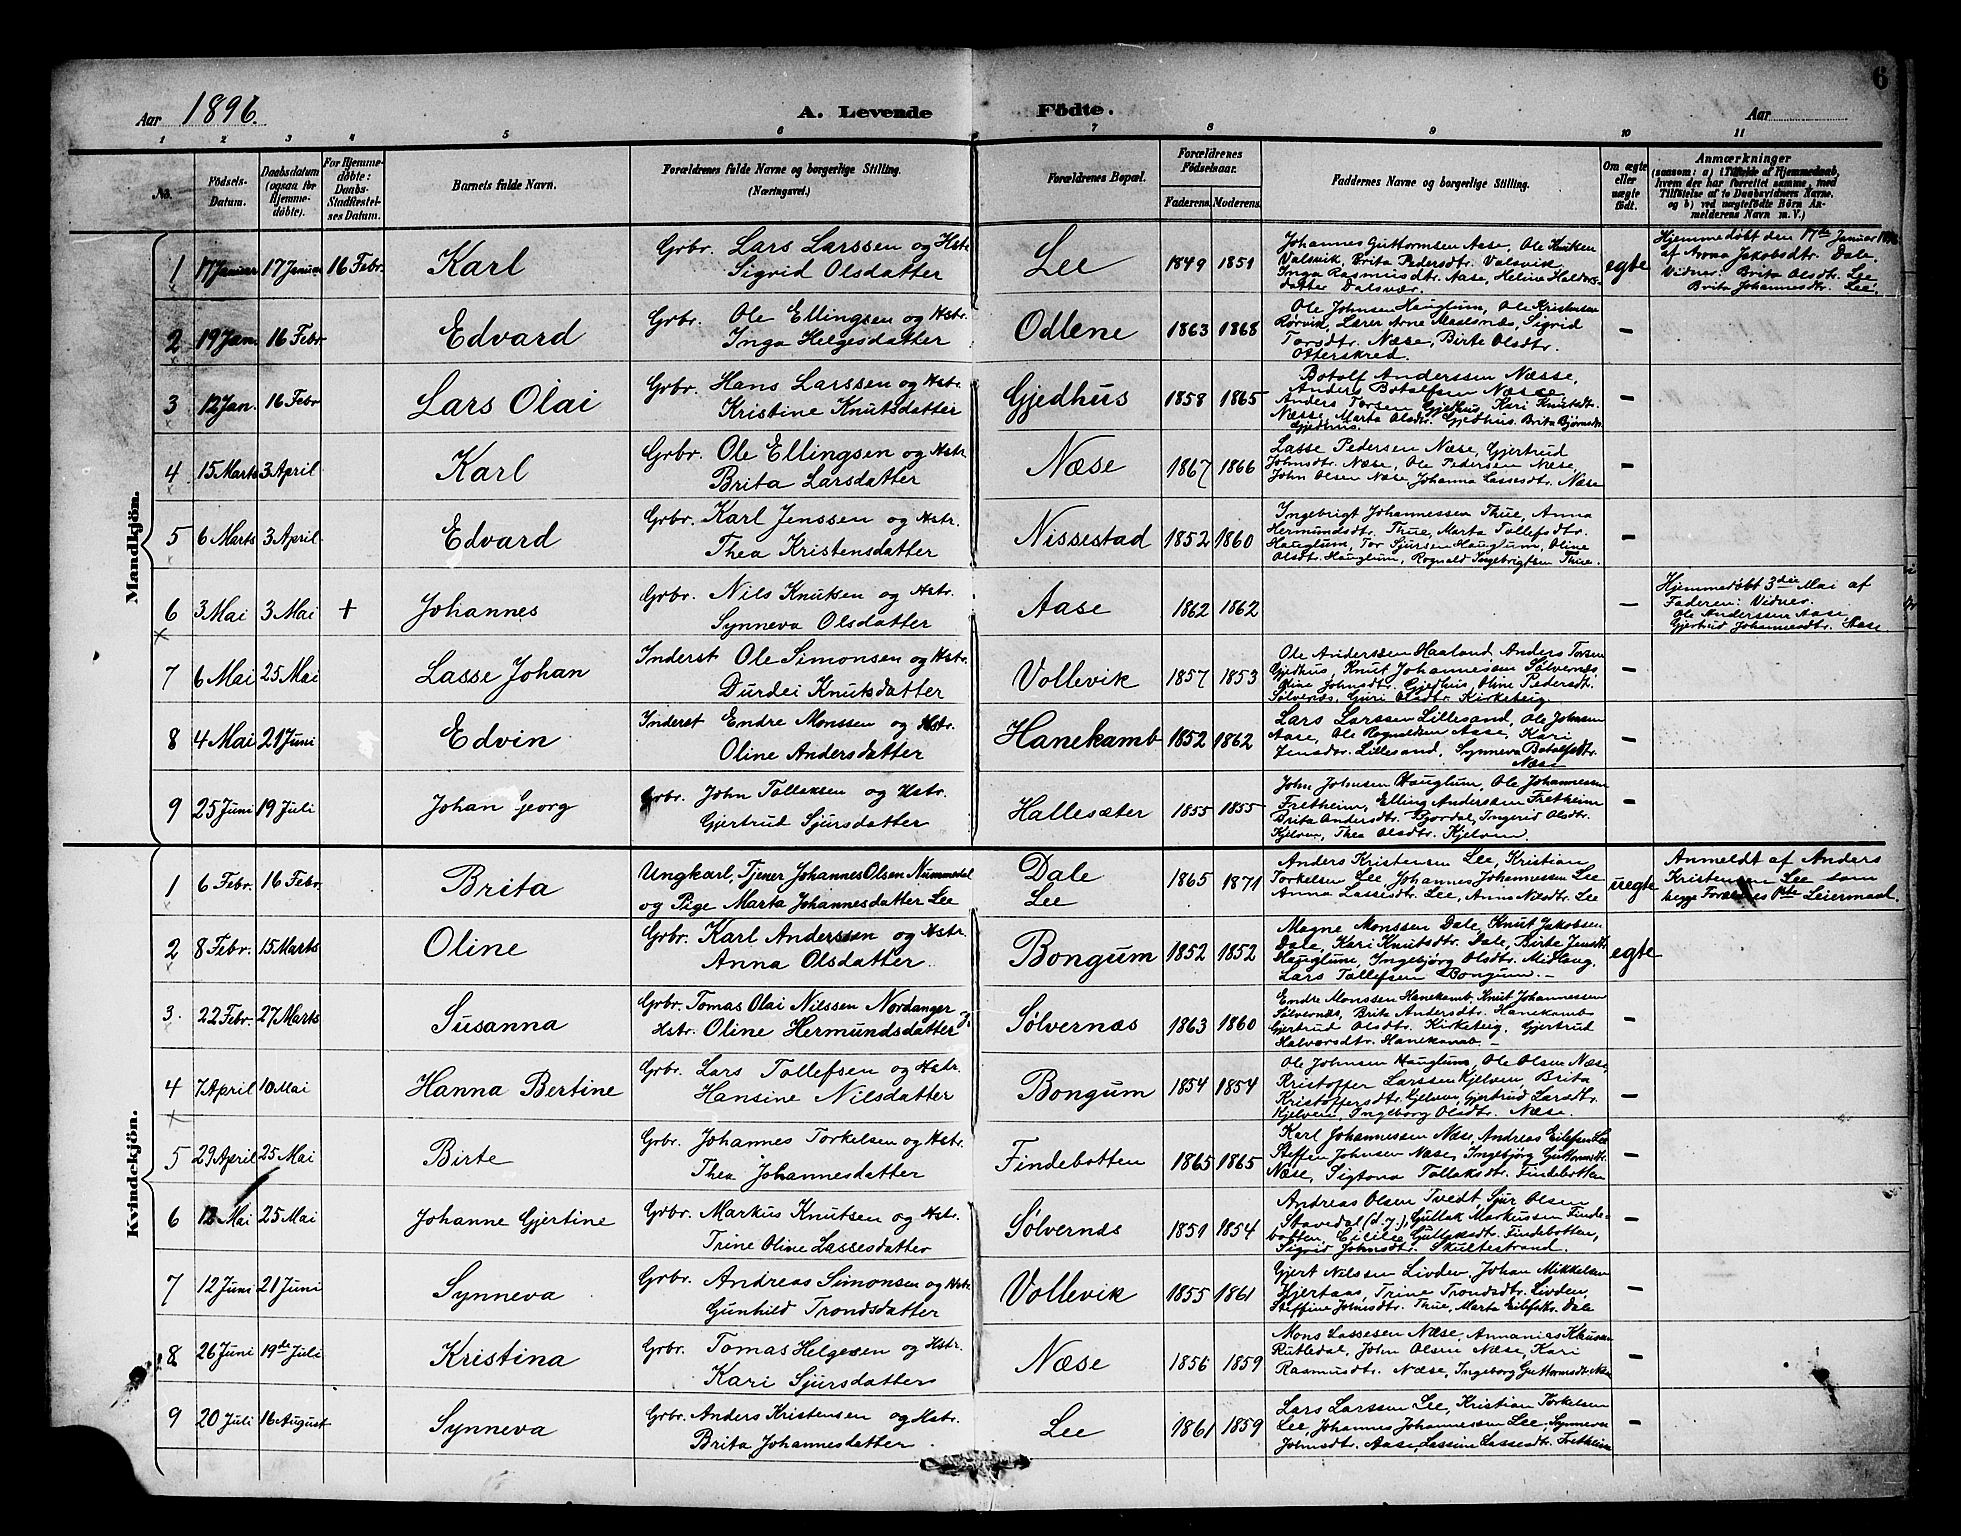 6
Aar 1896. A. Levende Födte. Aar
1 2 3 4 5 6 7 8 9 10 11
No. Födsels-Datum. Daabsdatum (ogsaa for Hjemme-døbte). For Hjemme-døbte: Daabs-Stadfæstel-ses Datum. Barnets fulde Navn. Forældrenes fulde Navne og borgerlige Stilling. (Næringsvei.) Forældrenes Bopæl. Forældrenes Födselsaar. Faderens. Moderens. Faddernes Navne og borgerlige Stilling. Om ægte eller uægte født. Anmærkninger (saasom: a) i Tilfælde af Hjemmedaab, hvem der har forrettet samme, med Tilföielse af to Daabsvidners Navne, og b) ved uægtefödte Börn An-melderens Navn m. V.)
Mandkjön.
1 17 Januar 17 Januar 16 Febr. Karl Grbr. Lars Larssen og Hstr. Sigrid Olsdatter Lee 1849 1851 Johannes Guttormsen Aase, Ole Knutsen Valsvik, Brita Pedersdt. Valsvik Inga Rasmusdtr. Aase, Heline Haldors-datter Dalsvær. egte Hjemmedøbt den 17de Januar 1896 af Anna Jakobsdtr. Dale. Vidner: Brita Olsdtr. Lee Brita Johannesdtr. Lee.
2 19 Jan. 16 Febr Edvard Grbr. Ole Ellingsen og Hstr. Inga Helgesdatter Odlene 1863 1868 Ole Johnsen Hauglum, Ole Kristensen Rørvik, Lærer Arne Masesnæs, Sigrid Torsdtr. Næse, Birte Olsdtr. Otterskred. —
3 12 Jan. 16 Febr Lars Olai Grbr. Hans Larssen og Hstr. Kristine Knutsdatter Gjedhus 1858 1865 Botolf Anderssen Næsse, Anders Botolfsen Næsse Anders Torsen Gjedhus, Kari Knutsdtr. Næsse, Marta Olsdtr. Gjedhus. Brita Bjørnsdtr. Gjedhus. —
4 15 Marts 3 April Karl Grbr. Ole Ellingsen og Hstr Brita Larsdatter Næse 1867 1866 Lasse Pedersen Næse, Gjertrud Johnsdtr. Næse, Ole Pedersen Næse, John Olsen Næse Johanna Lassesdtr. Næse —
5 6 Marts 3 April Edvard Grbr. Karl Jenssen og Hstr. Thea Kristensdatter Nissestad 1852 1860 Ingebrigt Johannessen Thue, Anna Hermundsdtr. Thue, Marta Tollefsdtr. Hauglum, Tor Sjursen Hauglum, Oline Olsdtr. Hauglum, Rognald Ingebrigtsen Thue. —
6 3 Mai 3 Mai + Johannes Grbr. Nils Knutsen og Hstr. Synneva Olsdatter Aase 1862 1862 — Hjemmedøbt 3die Mai af Faderen: Vidner: Ole Anderssen Aase, Gjertrud Johannesdtr. Aase.
7 6 Mai 25 Mai Lasse Johan Inderst Ole Simonsen og Hstr. Durdei Knutsdatter Vollevik 1857 1853 Ole Anderssen Haaland, Anders Torsen Gjedhus, Knut Johannessen Sølvernæs, Oline Johnsdtr. Gjedhus Oline Pedersdt. Sølvernæs. Guri Olsdtr. Kirketeig —
8 4 Mai 21 Juni Edvin Inderst Endre Monssen og Hstr. Oline Andersdatter Hanekamb 1852 1862 Lars Larssen Lillesand, Ole Johnsen Aase, Ole Rognaldsen Aase, Kari Jensdtr. Lillesand, Synneva Botolfsdtr. Næse —
9 25 Juni 19 Juli Johan Georg Grbr. John Tollaksen og Hstr. Gjertrud Sjursdatter Hallesæter 1855 1855 John Johnsen Hauglum, Ole Johannessen Fretheim, Elling Anderssen Fretheim Brita Andersdtr. Bjordal, Ingerid Olsdtr. Kjelven, Thea Olsdtr. Kjelven. —
Kvindekjön.
1 6 Febr. 16 Febr. Brita Ungkarl, Tjener Johannes Olsen Nummedal og Pige Marta Johannesdatter Lee Dale Lee 1865 1871 Anders Kristensen Lee, Kristian Torkelsen Lee, Johannes Johannessen Lee Anna Lassesdtr. Lee, Anna Næsdtr. Lee uegte Anmeldt af Anders Kristensen Lee som begge Forældres 1ste Leiermaal.
2 8 Febr. 15 Marts Oline Grbr. Karl Anderssen og Hstr. Anna Olsdatter Bongum 1852 1852 Magne Monssen Dale, Knut Jakobsen Dale, Kari Knutsdtr. Dale, Birte Jensdt. Hauglum, Ingebjørg Olsdtr. Midhaug. Lars Tollefsen Bongum. — egte
3. 22 Febr. 27 Marts Susanna Grbr. Tomas Olai Nilssen Nordanger og Hstr. Oline Hermundsdatter Sølvernæs 1863 1860 Endre Monssen Hanekamb, Knut Johannessen Sølvernæs, Brite Andersdtr. Hanekamb Gjertrud Olsdtr. Kirketeig, Gjertrud Halvorsdtr. Hanekamb. — —
4 7 April 10 Mai Hanna Bertine Grbr. Lars Tollefsen og Hstr. Hansine Nilsdatter Bongum 1854 1854 Ole Johnsen Hauglum, Ole Olsen Næse, Kristoffer Larssen Kjelven, Brita Kristoffersdtr. Kjelven, Gjertrud Larsdtr. Kjelven, Ingeborg Olsdtr. Næse. —
5 29 April 25 Mai Birte Grbr. Johannes Torkelsen og Hstr. Thea Johannesdatter Findebotten 1865 1865 Karl Johannessen Næse, Andreas Eilefsen Lee Steffen Johnsen Næse, Ingebjørg Guttormsdtr. Næse, Sigtona Tollaksdtr. Findebotten —
6 12 Mai 25 Mai Johanne Gjertine Grbr. Markus Knutsen og Hstr. Trine Oline Lassesdatter Sølvernæs 1851 1854 Andreas Olsen Tvedt, Sjur Olsen Stavedal (d.y.), Gullak Markussen Finde-botten, Cicilie Gullaksdtr. Findebotten, Sigrid Johnsdtr. Skultestrand. —
7 12 Juni 21 Juni Synneva Grbr. Andreas Simonsen og Hstr Gunhild Trondsdatter Vollevik 1855 1861 Gjert Nilssen Livden, Johan Mikkelsen Hjertaas, Trine Trondsdtr. Livden, Steffine Johnsdtr. Thue, Marta Eilefsdtr. Dale —
8 26 Juni 19de Juli Kristina Grbr. Tomas Helgesen og Hstr. Kari Sjursdatter Næse 1856 1859 Mons Lassesen Næse, Annanias Klausen Rutledal, John Olsen Næse, Kari Rasmusdtr. Næse, Ingeborg Guttormsdtr. Næse —
9 20 Juli 16 August Synneva Grbr. Anders Kristensen og Hstr. Brita Johannesdatter Lee 1861 1859 Lars Larssen Lee, Kristian Torkelsen Lee, Johannes Johannessen Lee, Synneva Johnsdtr. Aase, Lassine Lassesdtr. Fretheim —